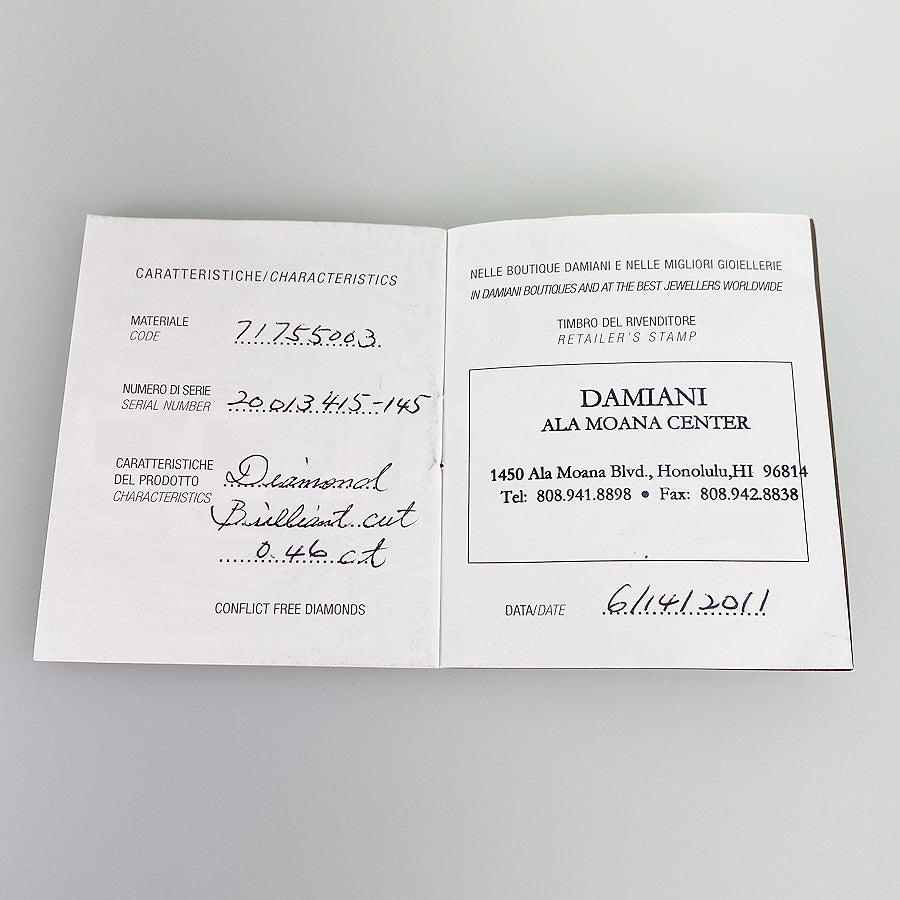 CARATTERISTICHE/CHARACTERISTICS
MATERIALE
CODE
71755003
NUMERO DI SERIE
SERIAL NUMBER
20013415-145
CARATTERISTICHE
DEL PRODOTTO
CHARACTERISTICS
Diamond
Brilliant cut
0.46 ct
CONFLICT FREE DIAMONDS
NELLE BOUTIQUE DAMIANI E NELLE MIGLIORI GIOIELLERIE
IN DAMIANI BOUTIQUES AND AT THE BEST JEWELLERS WORLDWIDE
TIMBRO DEL RIVENDITORE
RETAILER'S STAMP
DAMIANI
ALA MOANA CENTER
1450 Ala Moana Blvd., Honolulu,HI 96814
Tel: 808.941.8898 • Fax: 808.942.8838
DATA/DATE 6/14/2011